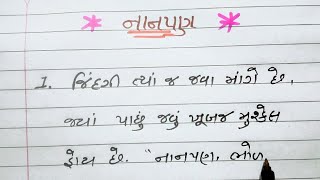 નાનપણ
1. જિંદગી ત્યાં જ જવા માંગે છે,
જ્યાં પાછું જવું ખૂબજ મુશ્કેલ
હોય છે. "નાનપણ, ભોળ